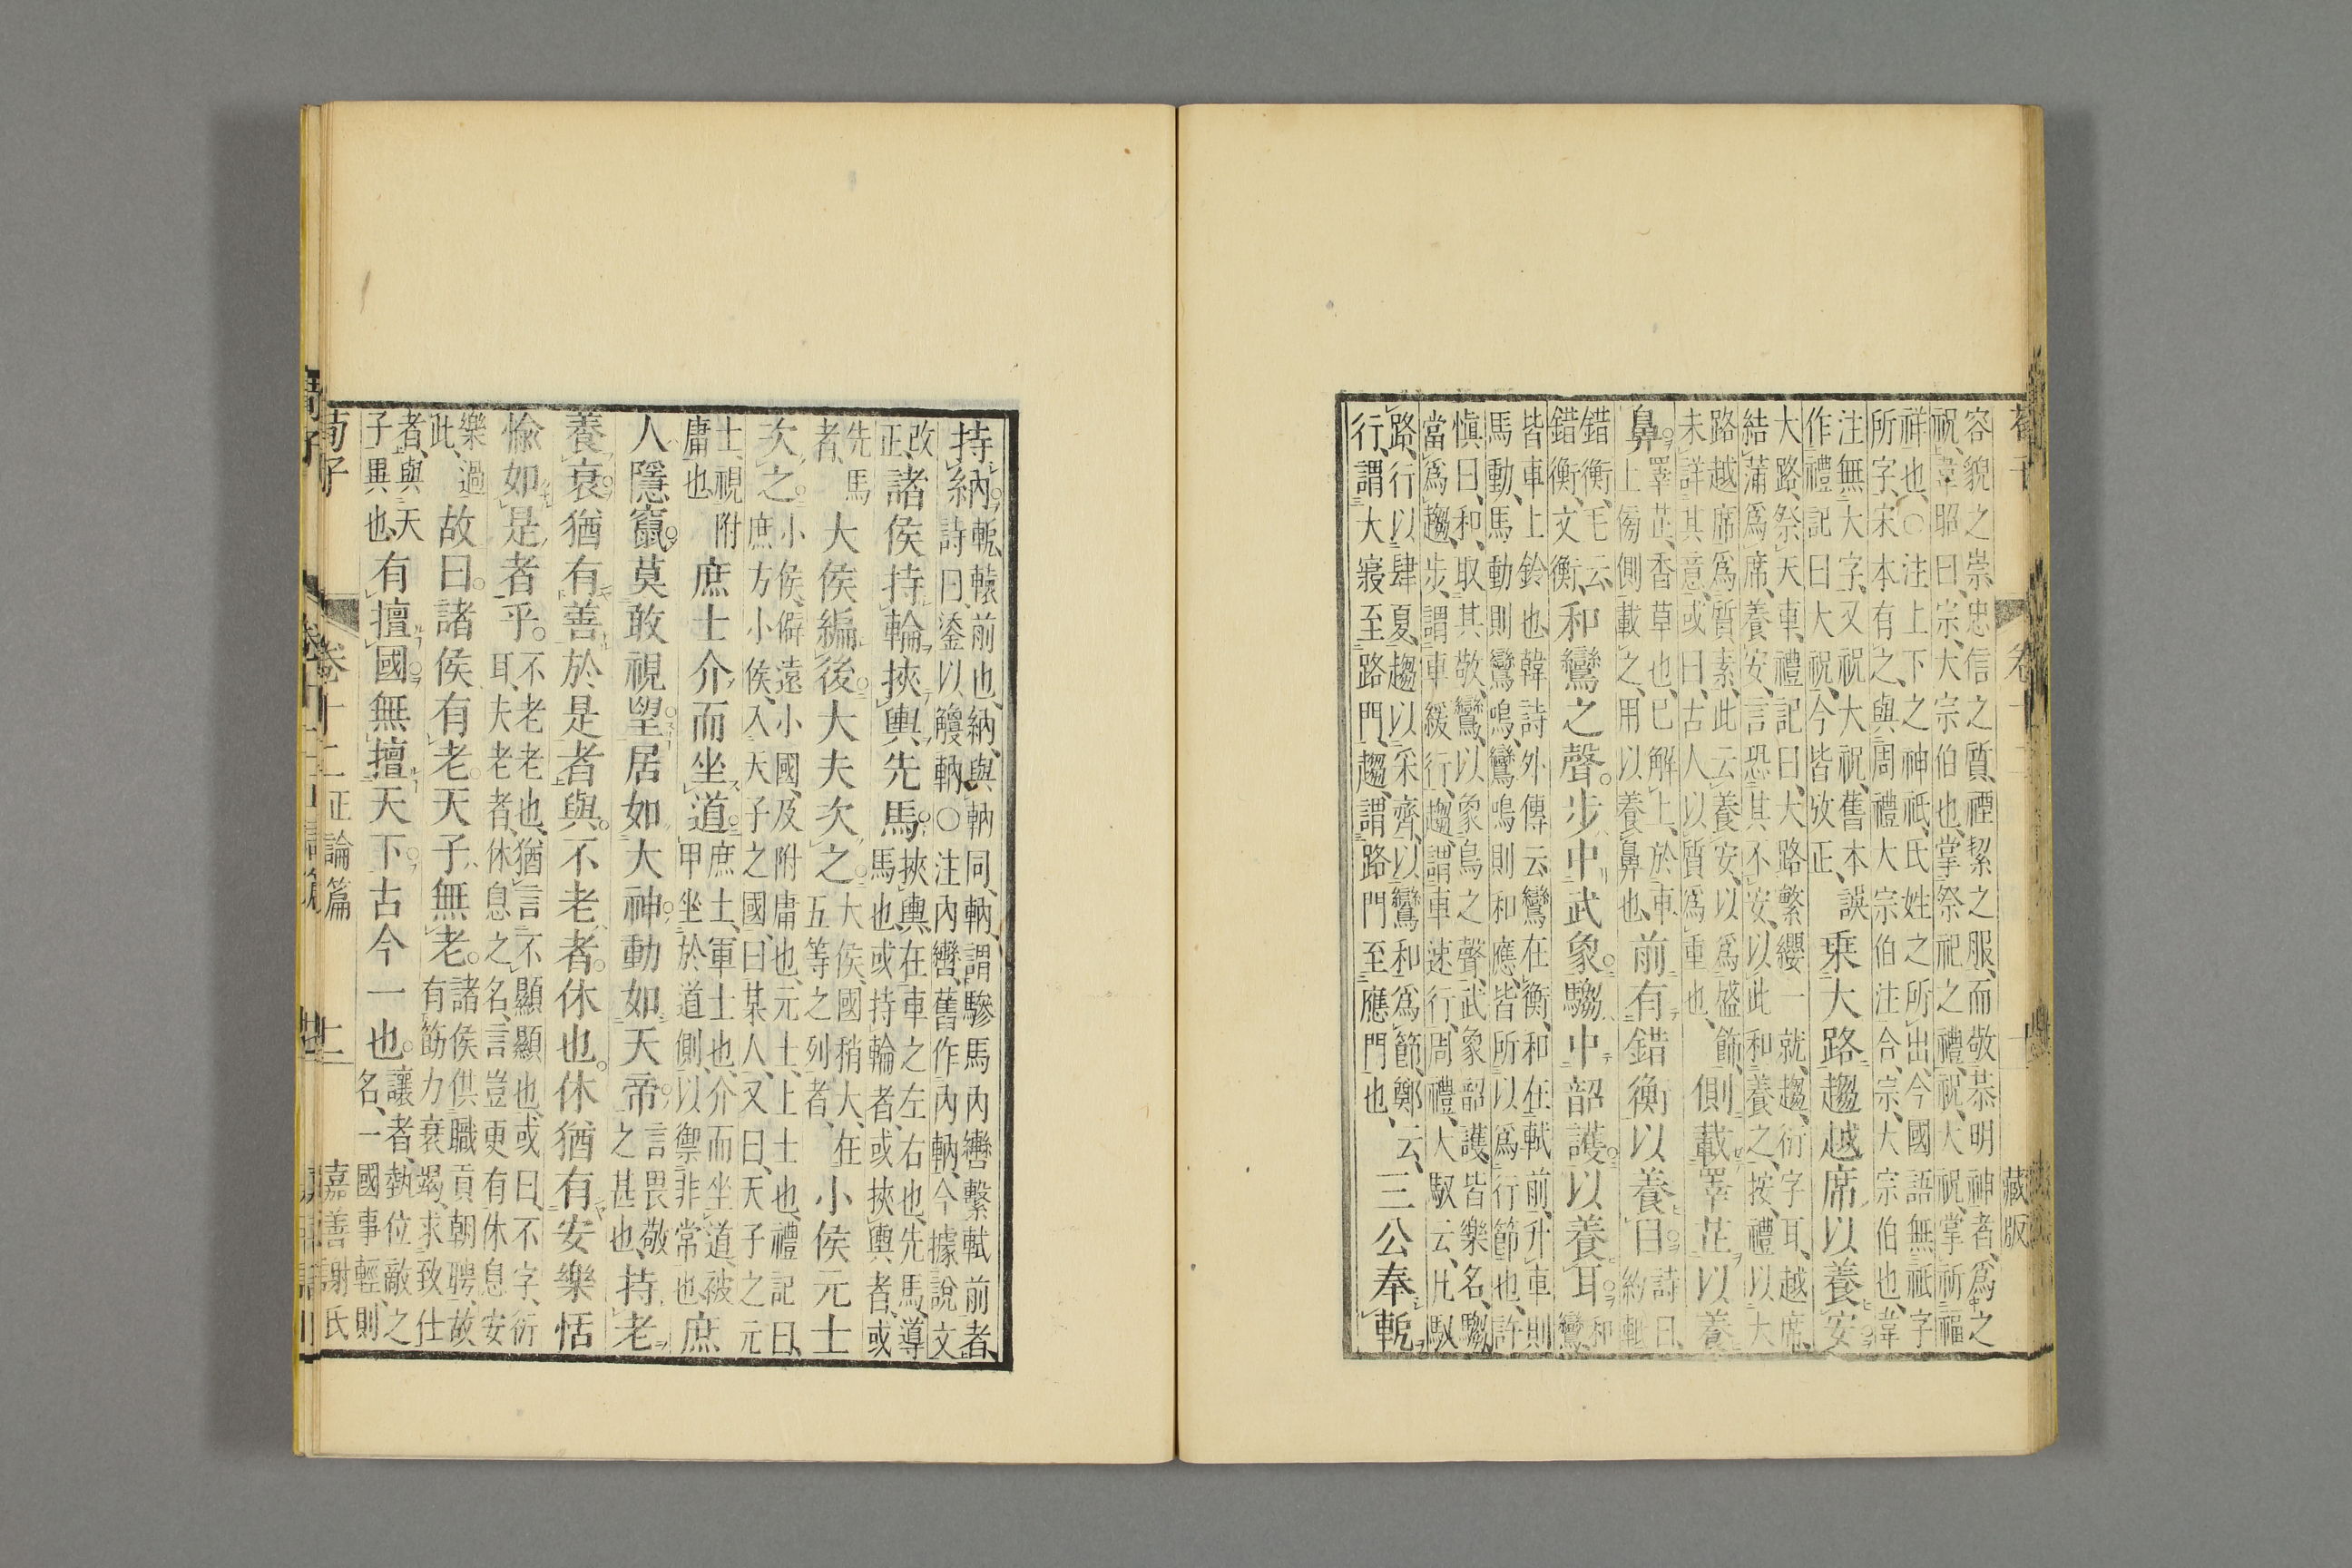 容貌之崇忠信之質禋絜之服而敬恭明神者爲之
祝韋昭曰宗大宗伯也掌祭祀之禮祝大祝掌祈福
祥也○注上下之神祇氏姓之所出今國語無祇字
所字宋本有之與周禮大宗伯注合宗大宗伯也韋
注無大字又祝大祝舊本誤
作禮記曰大祝今皆攷正
乘大路趨越席以養安
大路祭天車禮記曰大路繁纓一就趨衍字耳越席
結蒲爲席養安言恐其不安以此和養之按禮以大
路越席爲質素此云養安以爲盛飾
未詳其意或曰古人以質爲重也
側載睪芷以養
鼻
睪芷香草也已解上於車
上傍側載之用以養鼻也
前有錯衡以養目
詩曰約軝
錯衡毛云
錯衡文衡
和鸞之聲。步中武象騶中韶護以養耳
和鸞
皆車上鈴也韓詩外傳云鸞在衡和在軾前升車則
馬動馬動則鸞鳴鸞鳴則和應皆所以爲行節也許
愼曰和取其敬鸞以象鳥之聲武象韶護皆樂名騶
當爲趨步謂車緩行趨謂車速行周禮大馭云凡馭
路行以肆夏趨以采齊以鸞和爲節鄭云
行謂大寢至路門趨謂路門至應門也
三公奉軶
持納
軶轅前也納與軜同軜謂驂馬內轡繫軾前者
詩曰鋈以觼軜○注內轡舊作內軜今據說文
改
正
諸侯持輪挾輿先馬
挾輿在車之左右也先馬導
馬也或持輪者或挾輿者或
先馬
者
大侯編後大夫次之
大侯國稍大在
五等之列者
小侯元士
次之
小侯僻遠小國及附庸也元士上士也禮記曰
庶方小侯入天子之國曰某人又曰天子之元
士視附
庸也
庶士介而坐道
庶士軍士也介而坐道被
甲坐於道側以禦非常也
庶
人隱竄莫敢視望居如大神動如天帝
言畏敬
之甚也
持老
養衰猶有善於是者與。不老者。休也。休猶有安樂恬
愉如是者乎。
不老老也猶言不顯顯也或曰不字衍
耳夫老者休息之名言豈更有休息安
樂過
此
故曰。諸侯有老。天子無老。
諸侯供職貢朝聘故
有筋力衰竭求致仕
者與天
子異也
有擅國無擅天下古今一也。
讓者埶位敵之
名一國事輕則
荀子
卷十二正論篇
十二
嘉善謝氏
藏版